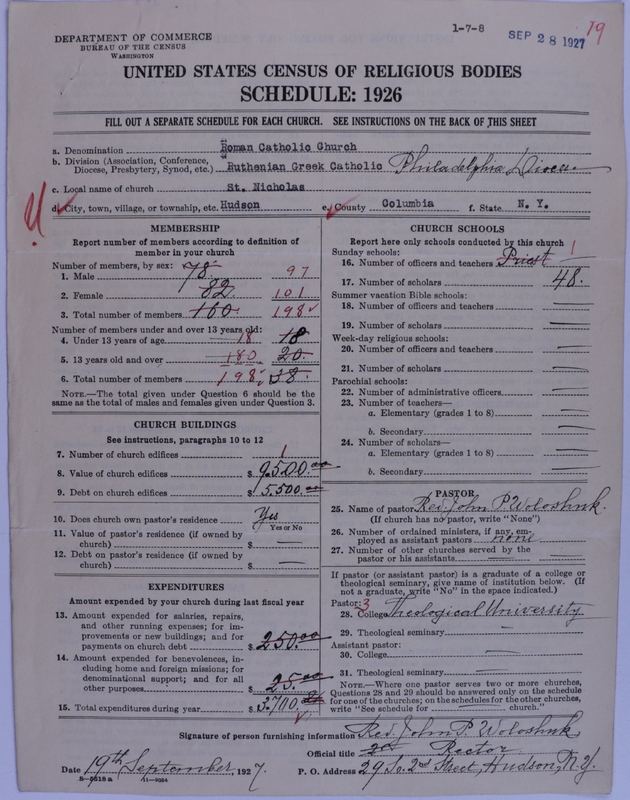 1-7-8
SEP 28 1927
19
DEPARTMENT OF COMMERCE
BUREAU OF THE CENSUS
WASHINGTON
UNITED STATES CENSUS OF RELIGIOUS BODIES
SCHEDULE: 1926
FILL OUT A SEPARATE SCHEDULE FOR EACH CHURCH. SEE INSTRUCTIONS ON THE BACK OF THIS SHEET
a. Denomination Roman Catholic Church
b. Division (Association, Conference, Diocese, Presbytery, Synod, etc.) Ruthenian Greek Catholic Philadelphia
c. Local name of church St. Nicholas
d. City, town, village, or township, etc. Hudson e. County Columbia f. State N. Y.
MEMBERSHIP
Report number of members according to definition of
member in your church
Number of members, by sex:
1. Male 78 97
2. Female 82 101
3. Total number of members 160 198
Number of members under and over 13 years old:
4. Under 13 years of age 18 18
5. 13 years old and over 180 20
6. Total number of members 198 38
NOTE.—The total given under Question 6 should be
same as the total of males and females given under Question 3.
CHURCH BUILDINGS
See instructions, paragraphs 10 to 12
7. Number of church edifices 1
8. Value of church edifices $ 9500.00
9. Debt on church edifices $ 5,500.00
10. Does church own pastor's residence Yes
Yes or No
11. Value of pastor's residence (if owned by
church) $
12. Debt on pastor's residence (if owned by
church) $ —
EXPENDITURES
Amount expended by your church during last fiscal year
13. Amount expended for salaries, repairs,
and other running expenses; for im-
provements or new buildings; and for
payments on church debt $ 250.00
14. Amount expended for benevolences, in-
cluding home and foreign missions; for
denominational support; and for all
other purposes $ 25.00
15. Total expenditures during year $
CHURCH SCHOOLS
Report here only schools conducted by this church
Sunday schools:
16. Number of officers and teachers Priest 1
17. Number of scholars 48.
Summer vacation Bible schools:
18. Number of officers and teachers —
19. Number of scholars —
Week-day religious schools:
20. Number of officers and teachers —
21. Number of scholars —
Parochial schools:
22. Number of administrative officers —
23. Number of teachers—
a. Elementary (grades 1 to 8) —
b. Secondary —
24. Number of scholars—
a. Elementary (grades 1 to 8) —
b. Secondary —
PASTOR
25. Name of pastor Rev. John P. Woloshuk.
(If church has no pastor, write "None")
26. Number of ordained ministers, if any, em-
ployed as assistant pastors none
27. Number of other churches served by the
pastor or his assistants —
If pastor (or assistant pastor) is a graduate of a college or
theological seminary, give name of institution below. (If
not a graduate, write "No" in the space indicated.)
Pastor: 3
28. College Theological University
29. Theological seminary —
Assistant pastor:
30. College —
31. Theological seminary —
NOTE.—Where one pastor serves two or more churches,
Questions 28 and 29 should be answered only on the schedule
for one of the churches; on the schedules for the other churches,
write "See schedule for church."
Signature of person furnishing information Rev. John P. Woloshuk
Official title Rector
Date 19th September, 1927. P. O. Address 29 So. 2nd Street, Hudson, N.Y.
11—9034